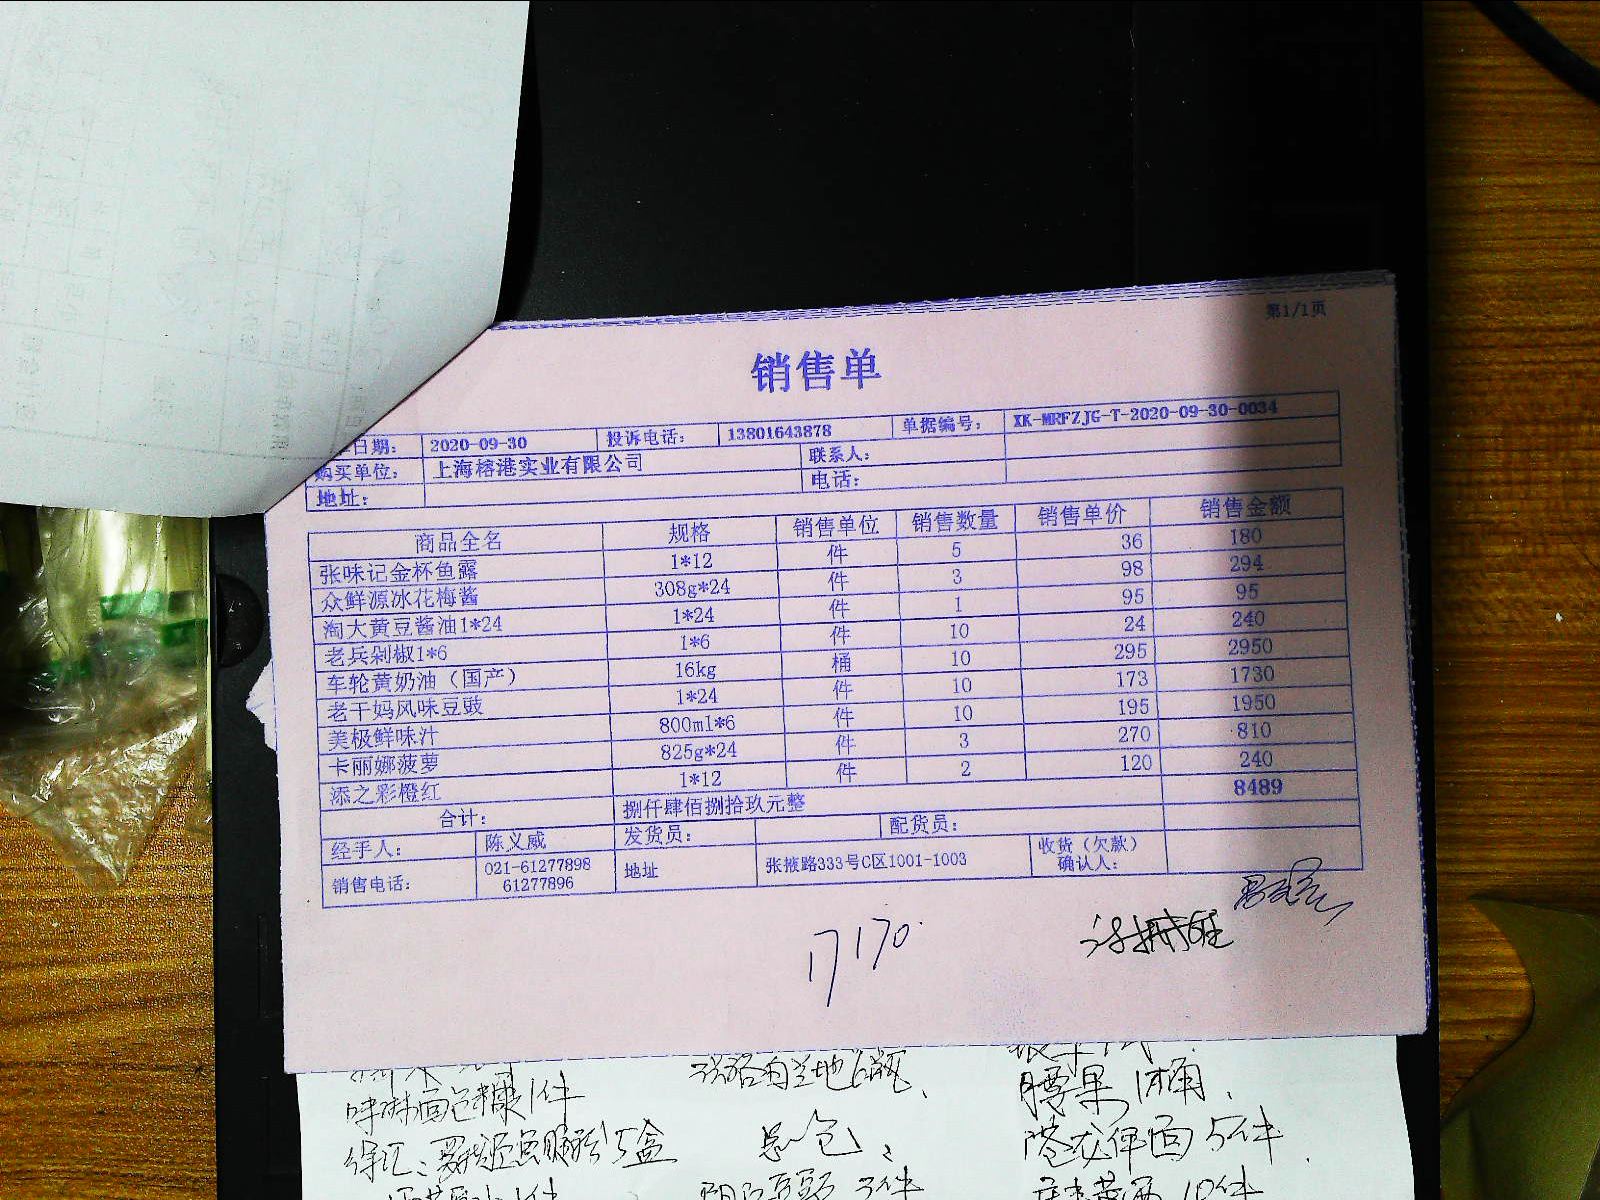 第1/1页
销售单
日期： 2020-09-30 投诉电话： 13801643878 单据编号： XK-MRFZJG-T-2020-09-30-0034
购买单位： 上海榕港实业有限公司 联系人：
地址： 电话：
商品全名 规格 销售单位 销售数量 销售单价 销售金额
张味记金杯鱼露 1*12 件 5 36 180
众鲜源冰花梅酱 308g*24 件 3 98 294
淘大黄豆酱油1*24 1*24 件 1 95 95
老兵剁椒1*6 1*6 件 10 24 240
车轮黄奶油（国产） 16kg 桶 10 295 2950
老干妈风味豆豉 1*24 件 10 173 1730
美极鲜味汁 800ml*6 件 10 195 1950
卡丽娜菠萝 825g*24 件 3 270 810
添之彩橙红 1*12 件 2 120 240
合计： 捌仟肆佰捌拾玖元整 8489
经手人： 陈义威 发货员： 配货员：
销售电话： 021-61277898 61277896 地址 张掖路333号C区1001-1003 收货（欠款）确认人：
17170
腰果1桶
面包糠1件
5盒
总包
面5件
3件
10件